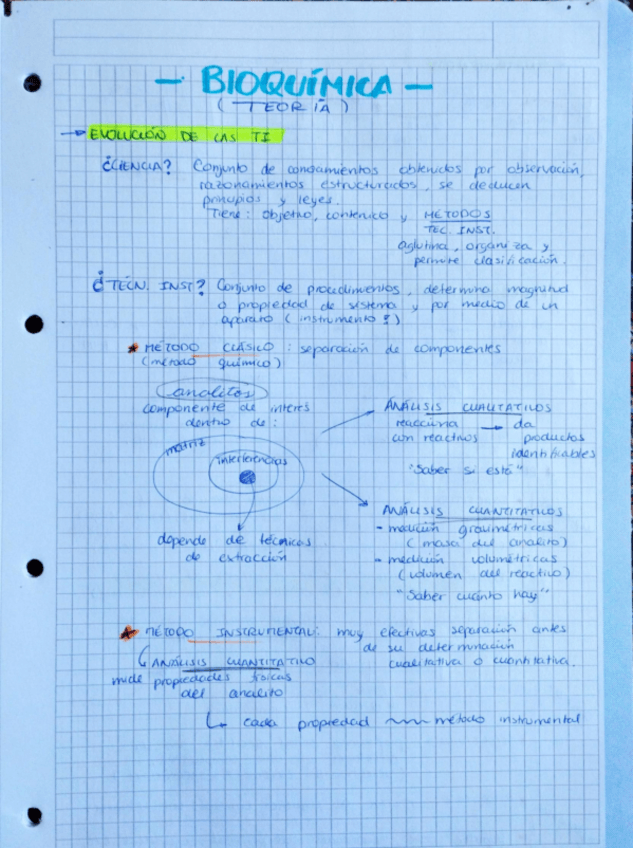 - BIOQUÍMICA -
(TEORÍA)
→ EVOLUCIÓN DE LAS TI
¿CIENCIA? Conjunto de conocimientos obtenidos por observación,
razonamientos estructurados, se deducen
principios y leyes.
Tiene: objetivo, contenido y MÉTODOS
TEC. INST.
aglutina, organiza y
permite clasificación.
¿TÉCN. INST? Conjunto de procedimientos, determina magnitud
o propiedad de sistema y por medio de un
aparato (instrumento)
* MÉTODO CLÁSICO: separación de componentes
(método químico)
analitos
componente de interés
dentro de:
matriz
interferencias
depende de técnicas
de extracción
ANÁLISIS CUALITATIVOS
reacciona → da
con reactivos productos
identificables
"Saber si está"
ANÁLISIS CUANTITATIVOS
- medición gravimétricas
(masa del analito)
- medición volumétricas
(volumen del reactivo)
"Saber cuánto hay"
* MÉTODO INSTRUMENTAL: muy efectivas separación antes
de su determinación
cualitativa o cuantitativa.
ANÁLISIS CUANTITATIVO
mide propiedades físicas
del analito
↳ cada propiedad ~~~ método instrumental